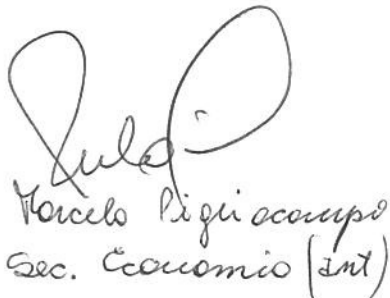 Marcelo Pigliocampo
Sec. Economia (Int)